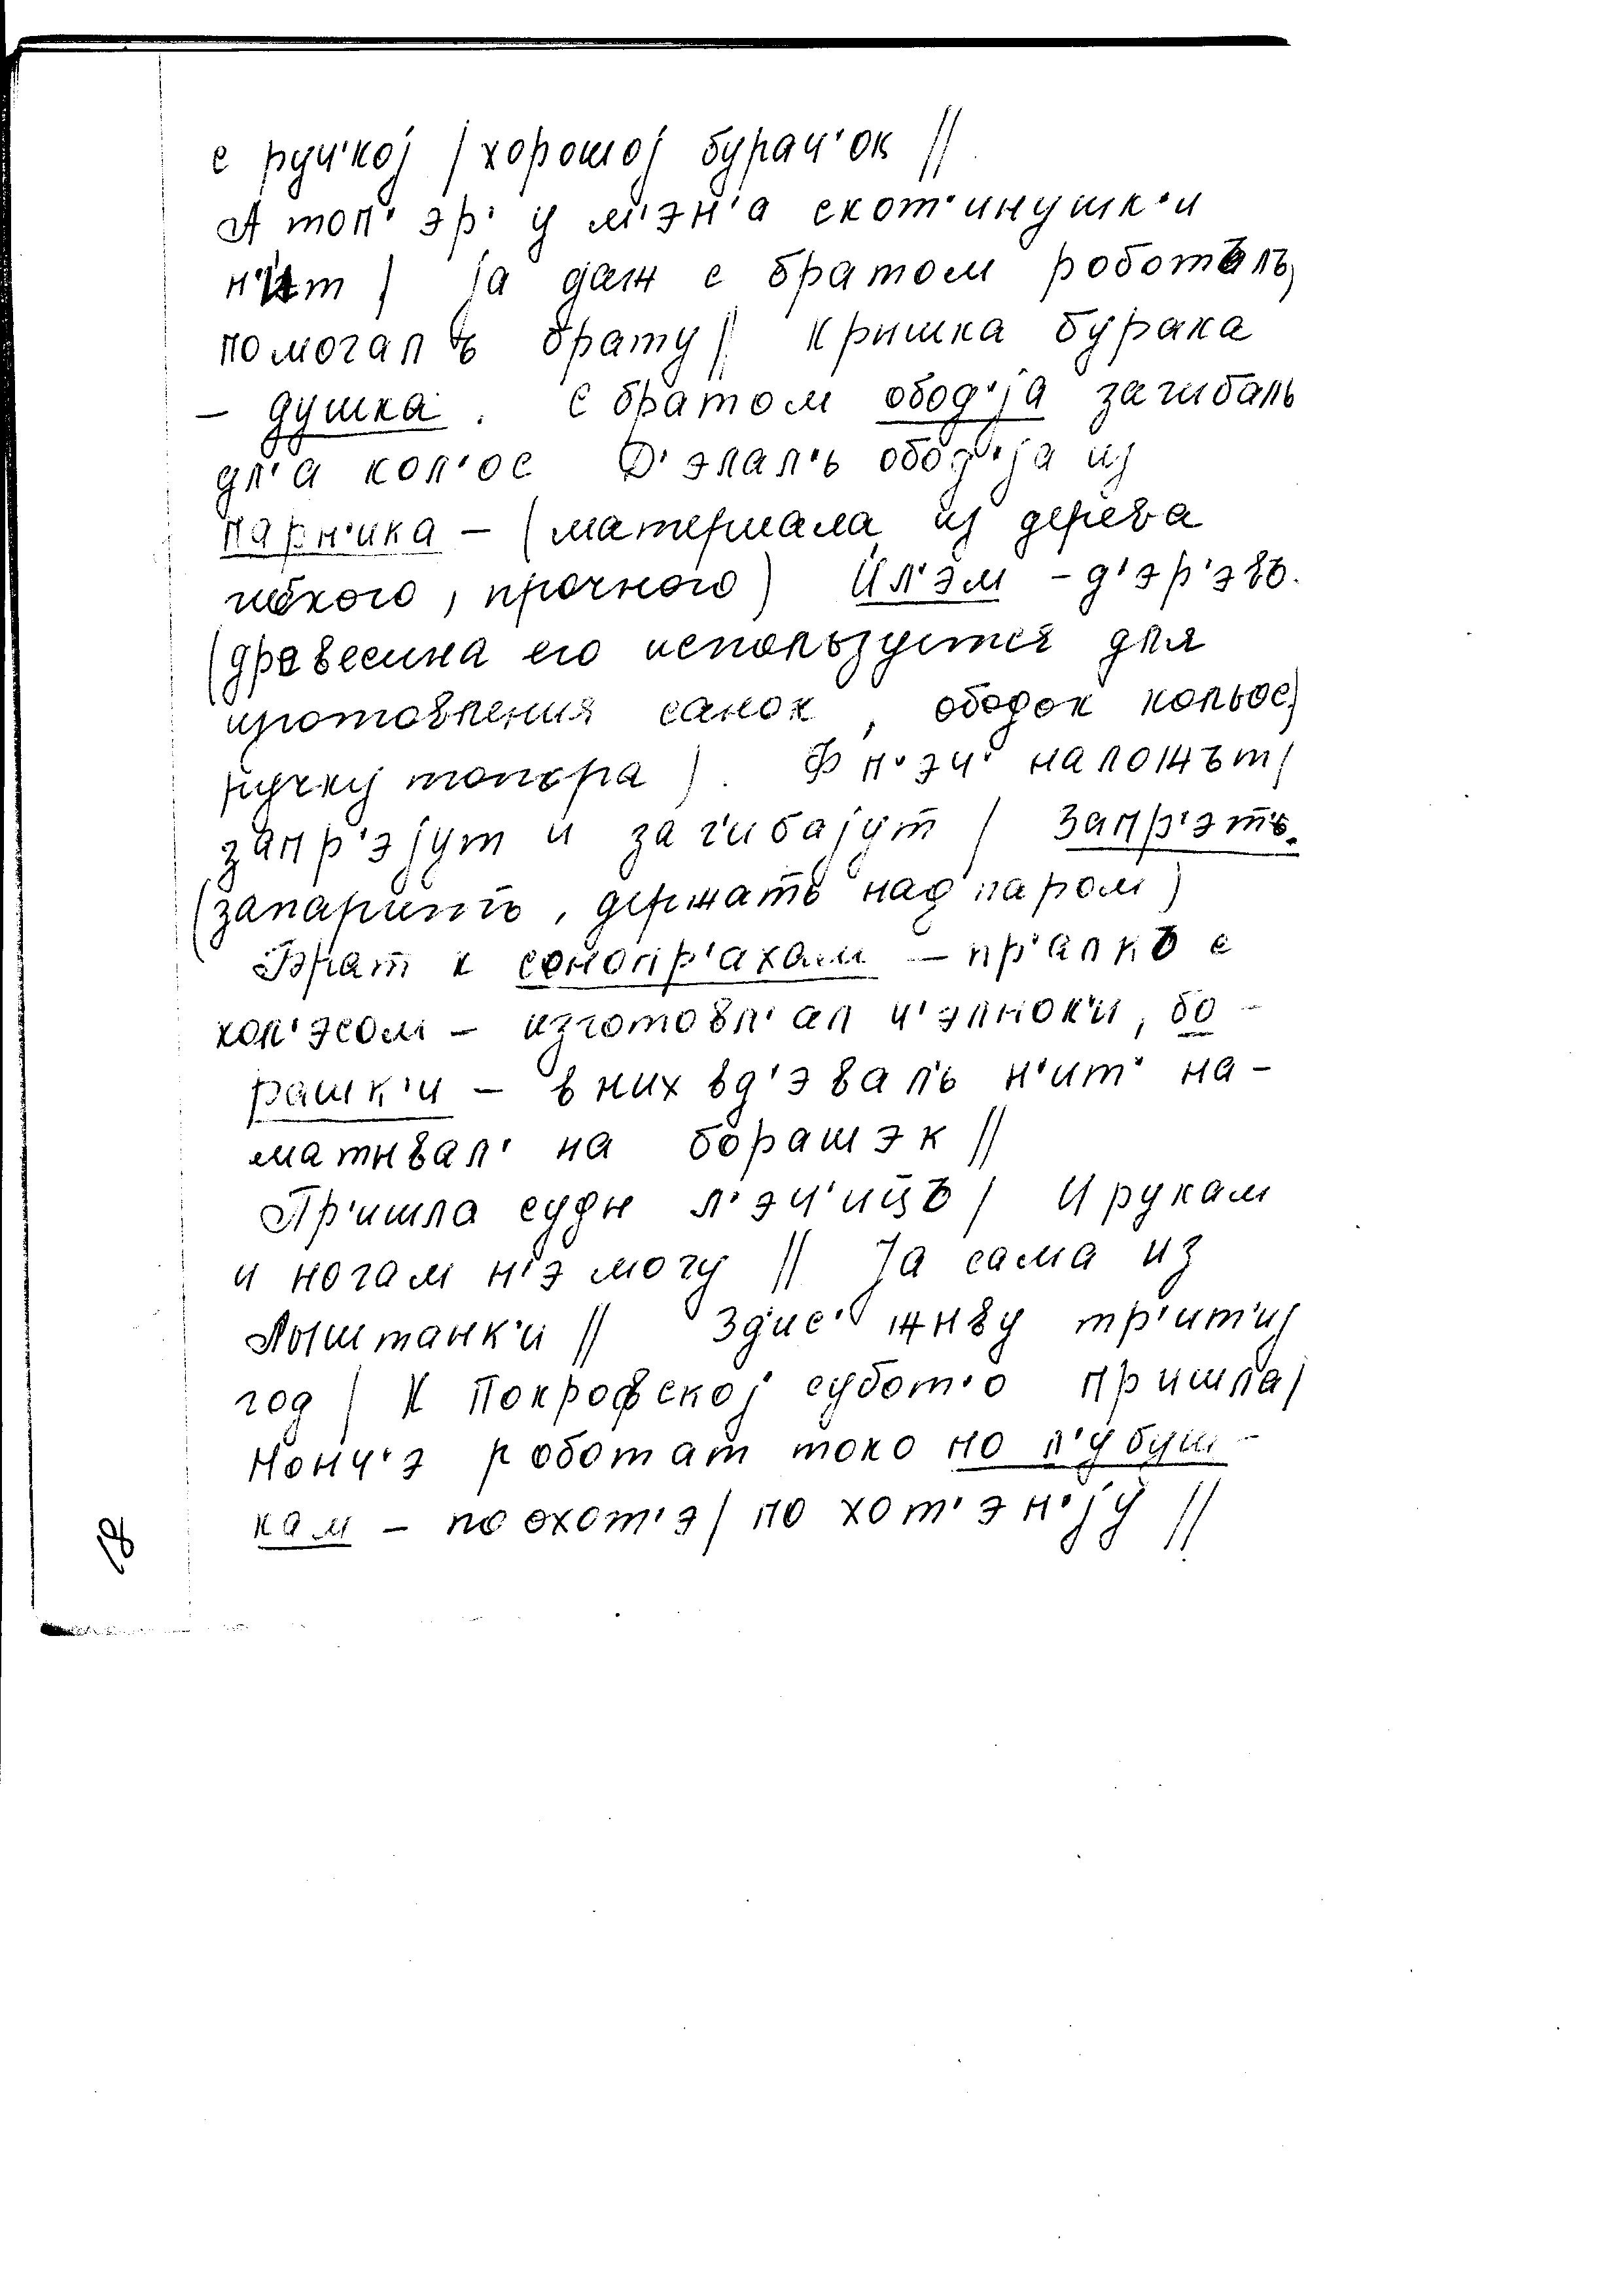 с руч'кој / хорошој бурач'ок //
А топ'эр' у м'эн'а скот'инушк'и
н'ит / ја даж с братом роботълъ,
помогалъ брату // Крышка бурака
– душка. С братом обод'ја загибалъ
дл'а кол'ос Д'элал'ь обод'ја из
парн'ика – (материала из дерева
гибкого, прочного) Ил'эм – д'эр'эвъ.
(древесина его используется для
изготовления санок, ободок кольос,
ручку топора). Ф п'эч' наложът /
запр'эјут и заг'ибајут / Запр'этъ.
(запарить, держать над паром)
Брат к самопр'ахам – пр'алкъ с
кол'эсом – изготовл'ал ч'элнок'и, бо-
рашк'и – в них вд'эвал'ь н'ит' на-
матывал' на борашэк //
Пр'ишла суды л'эч'ицъ / И рукам
и ногам н'э могу // Ја сама из
Лыштанк'и // Зд'ис' жыву тр'ит'иј
год / К Покрофској субот'о пришла /
Нонч'э роботат токо по л'убуш-
кам – по охот'э / по хот'эн'јӱ //
18